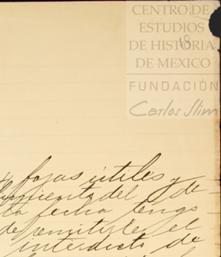 CENTRO DE
ESTUDIOS
DE HISTORIA
DE MEXICO
18
FUNDACIÓN
Carlos Slim
fojas útiles y
del de
la fecha tengo
de remitirle el
interdicto de